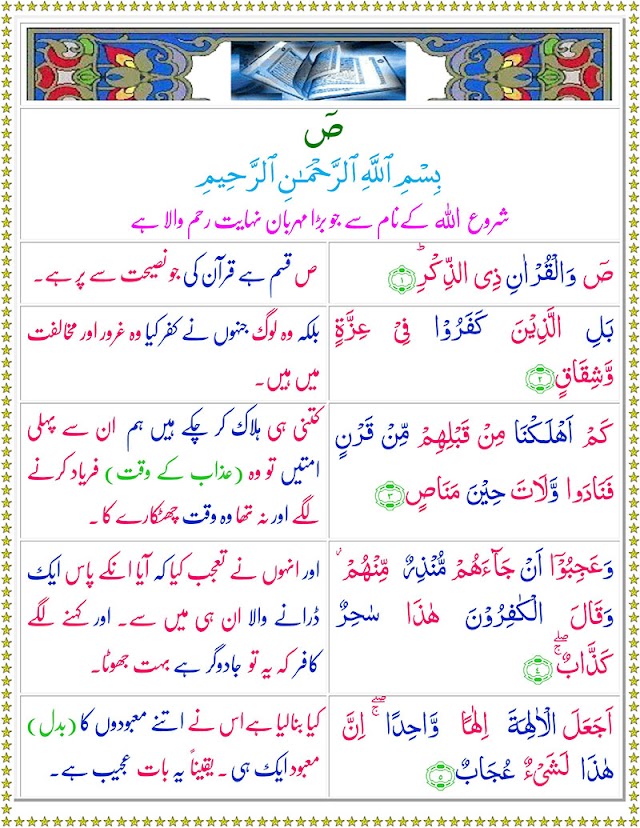 صٓ
بِسْمِ ٱللَّهِ ٱلرَّحْمَـٰنِ ٱلرَّحِيمِ
شروع اللہ کے نام سے جو بڑا مہربان نہایت رحم والا ہے
صٓ وَالْقُرْاٰنِ ذِی الذِّكْرِؕ ﴿۱﴾
ص قسم ہے قرآن کی جو نصیحت سے پر ہے۔
بَلِ الَّذِيْنَ كَفَرُوْا فِیْ عِزَّةٍ
وَّشِقَاقٍ ﴿۲﴾
بلکہ وہ لوگ جنہوں نے کفر کیا وہ غرور اور مخالفت
میں ہیں۔
كَمْ اَهْلَكْنَا مِنْ قَبْلِهِمْ مِّنْ قَرْنٍ
فَنَادَوا وَّلَاتَ حِيْنَ مَنَاصٍ ﴿۳﴾
کتنی ہی ہلاک کر چکے ہیں ہم ان سے پہلی
امتیں تو وہ (عذاب کے وقت) فریاد کرنے
لگے اور نہ تھا وہ وقت چھٹکارے کا۔
وَعَجِبُوْۤا اَنْ جَآءَهُمْ مُّنْذِرٌ مِّنْهُمْ ؗ
وَقَالَ الْكٰفِرُوْنَ هٰذَا سٰحِرٌ
كَذَّابٌ ۖۚ ﴿۴﴾
اور انہوں نے تعجب کیا کہ آیا انکے پاس ایک
ڈرانے والا ان ہی میں سے۔ اور کہنے لگے
کافر کہ یہ تو جادوگر ہے بہت جھوٹا۔
اَجَعَلَ الْاٰلِهَةَ اِلٰهًا وَّاحِدًا ۖۚ اِنَّ
هٰذَا لَشَیْءٌ عُجَابٌ ﴿۵﴾
کیا بنالیا ہے اس نے اتنے معبودوں کا (بدل)
معبود ایک ہی۔ یقیناً یہ بات عجیب ہے۔